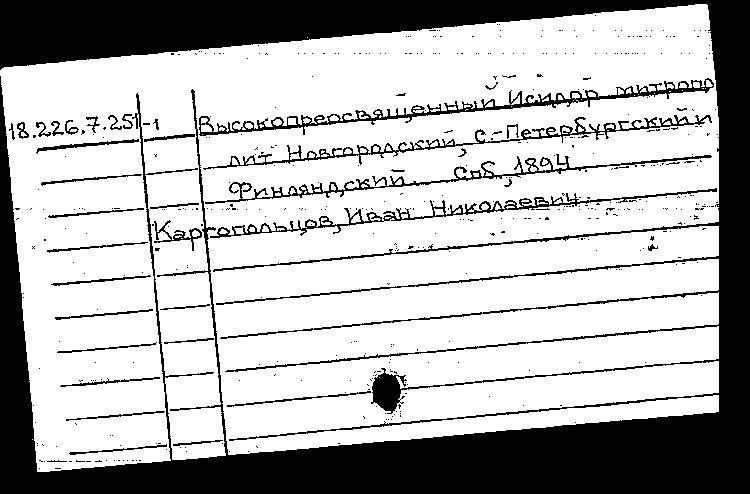 18.226.7.251-1 Высокопреосвященный Исидор митропо
лит Новгородский, С.-Петербургский и
Финляндский. Спб, 1894
Каргопольцов, Иван Николаевич